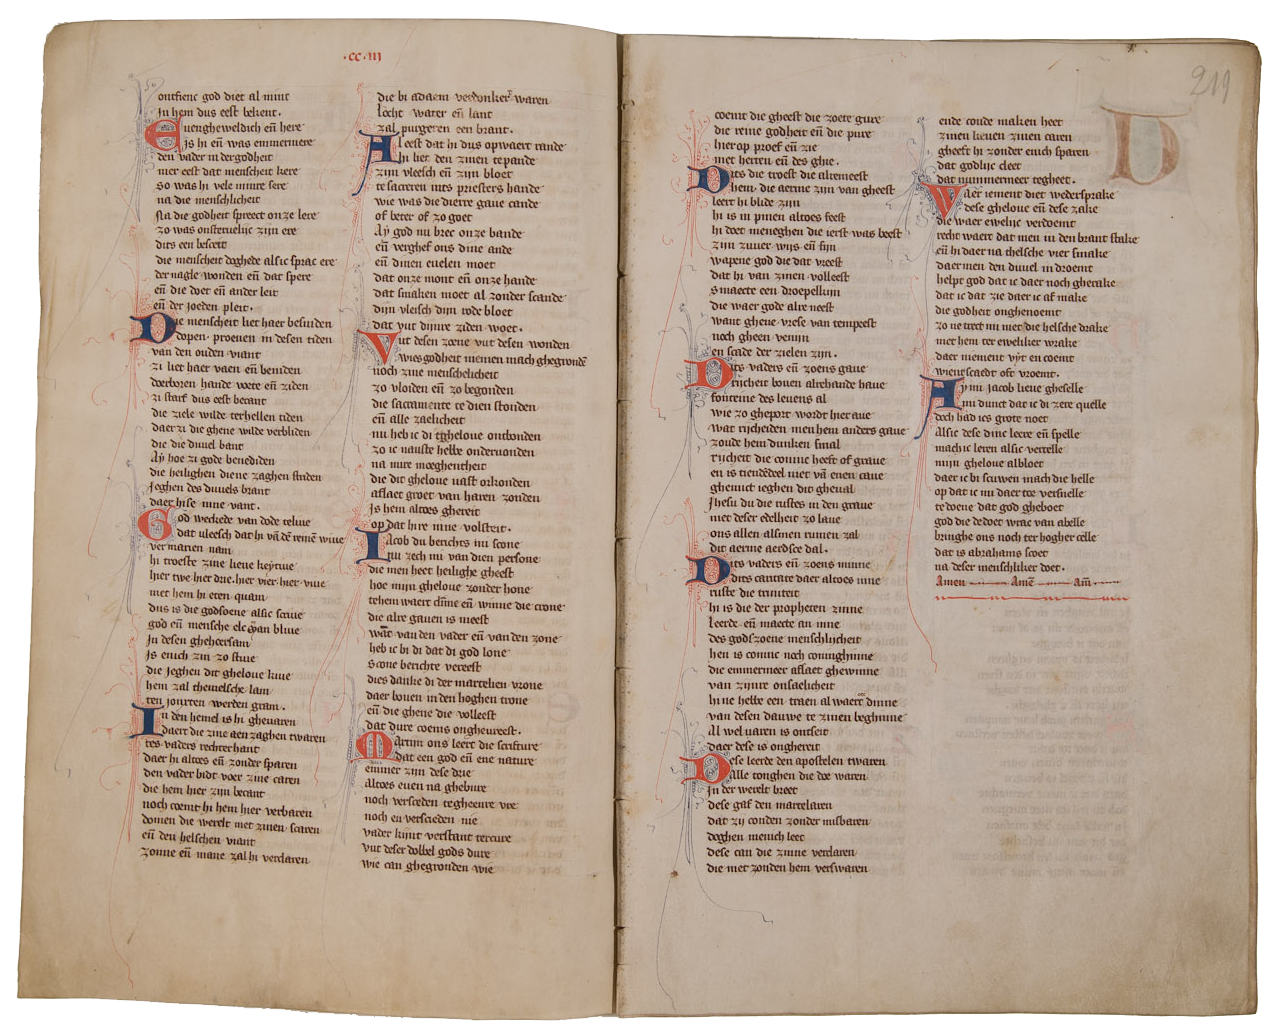 .cc.iij
ontfienc god diet al mint
In hem dus eest bekent.
Euengheweldich eñ here
Is hi eñ was emmermere
den vader in der godheit
mer eest dat menscheit kere
So was hi vele minre sere
na die menschlicheit
Na die godheit spreect onze lere
zo was onsteruelijc zijn ere
dits een besceit
die menscheit doghede alsic sprac ere
der nagle wonden eñ dat spere
eñ die doet eñ ander leit
eñ der joeden pleit.
Die menscheit liet haer besniden
Dopen proeuen in desen tiden
van den ouden viant
zi liet haer vaen eñ beniden
doerboren hande voete eñ ziden
zi starf dus eest becant
die ziele wilde ter hellen riden
daer zi die ghene wilde verbliden
die die duuel bant
Ay hoe zi gode benediden
die heilighen diene zaghen striden
Jeghen des duuels brant
daer hise nine vant.
God weckede van dode teluue
dat vleesch dat hi vā dē reinē wiue
ver marien nam
hi troeste zine lieue keytiue
hier twe hier drie.hier vier hier viue
met hem hi eten quam
dus is die godsoene alsic scriue
god eñ mensche elc van bliue
In desen gheheersam
Is enich zin zo stiue
die jeghen dit gheloue kiue
hem zal themelsche lam
ten joncten werden gram.
In den hemel is hi gheuaren
daert die zine aen zaghen twaren
tes vaders rechter hant
daer hi altoes eñ zonder sparen
den vader bidt voer zine caren
die hem hier zijn becant
noch coemt hi hem hier verbaren
domen die werelt met zinen scaren
eñ den helschen viant
zonne eñ mane zal hi verclaren
die bi adaem verdonkert waren
locht water eñ lant
zal purgeren een brant.
Alseest dat hi dus opwaert rande
In liet den zinen te pande
zijn vleesch eñ zijn bloet
te sacreren uuts priesters hande
wie was die dierre gaue cande
of beter of zo goet
Ay god nu brec onze bande
eñ verghef ons dine ande
eñ dinen euelen moet
dat onze mont eñ onze hande
dat smaken moet al zonder scande
dijn vleisch dijn rode bloet
dat vut dijnre ziden woet.
Vut desen zoene vut desen wonden
Wies godheit niemen mach ghegronden
noch zine menschelicheit
zo vloiden eñ zo begonden
die sacramente te dien stonden
eñ alle zaelicheit
nu hebic di tgheloue ontbonden
zo ic nauste hebbe onderuonden
na mire moeghentheit
die dit gheloue vast orkonden
aflaet groet van haren zonden
Is hem altoes ghereit
op dat hire mue volsteit.
Iacob du berichts mi scone
Nu zech mi van dien persone
die men heet heilighe gheest
hoe mijn gheloue zonder hone
tehem waert diñe eñ winne die crone
die alre gauen is meest
wāt van den vader eñ van den zone
heb ic bi di dat di god lone
Scone berichte vereest
dies danke di der martelien vrone
daer bouen in den hoghen trone
eñ die ghene die volleest
dat dure coems onghevreest.
Martijn ons leert die scrifture
dat een god eñ ene nature
emmer zijn dese drie
altoes euen na ghebure
noch versceden tegheenre vre
noch en versceeden nie
vader kijnt verstant tercure
vut deser dobbel gods dure
wie can ghegronden wie
219
coemt die gheest die zoete gure
die reine godheit eñ die pure
hier op proef eñ zie
met herten eñ des ghie.
Dits die troest die alremeest
hem die aerme zijn van gheest
leert hi blide zijn
hi is in pinen altoes feest
hi doet meneghen die ierst was beest
zijn zuuer wijs eñ fijn
wapene god die dat vreest
dat hi van zinen volleest
Smaecte een droepelkijn
die waer gode alre neest
want ghene vrese van tempeest
noch gheen venijn
en scade der zielen zijn.
Dits vaders eñ zoens gaue
Rijcheit bouen alrehande haue
fonteine des leuens al
wie zo gheport wordt hier aue
wat rijcheiden men hem anders gaue
zoude hem dunken smal
rijcheit die coninc heeft of graue
en is tiendēdeel niet vā enen caue
ghemict ieghen dit gheual
Jhesu du die rustes in den graue
met deser edelheit zo laue
ons allen alsmen rumen zal
dit aerme aerdsce dal.
Dits vaders eñ zoens minne
dits caritate daer altoes inne
ruste die triniteit
hi is die der propheten zinne
leerde eñ maecte an inne
des gods zoene menschlijcheit
hen is coninc noch coninghinne
die emmermeer aflaet ghewinne
van zijnre onsaelicheit
hi ne hebbe een traen al waert dinne
van desen dauwe te zinen beghinne
Al wel uaren is ontseit
daer dese is onghereit
Dese leerde den apostelen twaren
Alle tonghen die doe waren
In der werelt breet
dese gaf den martelaren
dat zij conden zonder misbaren
doghen menich leet
dese can die zinne verclaren
die met zonden hem verswaren
ende coude maken heet
zinen lieuen zinen caren
gheeft hi zonder enich sparen
dat godlijc cleet
dat nummermeer tegheet.
Waer iement diet wedersprake
dese gheloue eñ dese zake
die waer ewelijc verdoemt
recht waert dat men in den brant stake
eñ hi daer na thelsche vier smake
daer men den duuel in droemt
helpt god dat ic daer noch gherake
dat ic dat zie daer ic af make
die godheit onghenoemt
zo ne trect mi niet die helsche drake
met hem ter eweliker wrake
daer niement vijt en coemt
wient scaedt oft vroemt.
Ay mi jacob lieue gheselle
mi dunct dat ic di zere quelle
doch had ics grote noet
Alsic dese dine leere eñ spelle
mach ic leren alsic vertelle
mijn gheloue al bloet
daer ic bi scuwen mach die helle
op dat ic mi daer toe versnelle
te doene dat god gheboet
god die dedoet wrac van abelle
bringhe ons noch ter hogher celle
dat is abrahams scoet
na deser menschliker doet.
Amen Amē Am
D